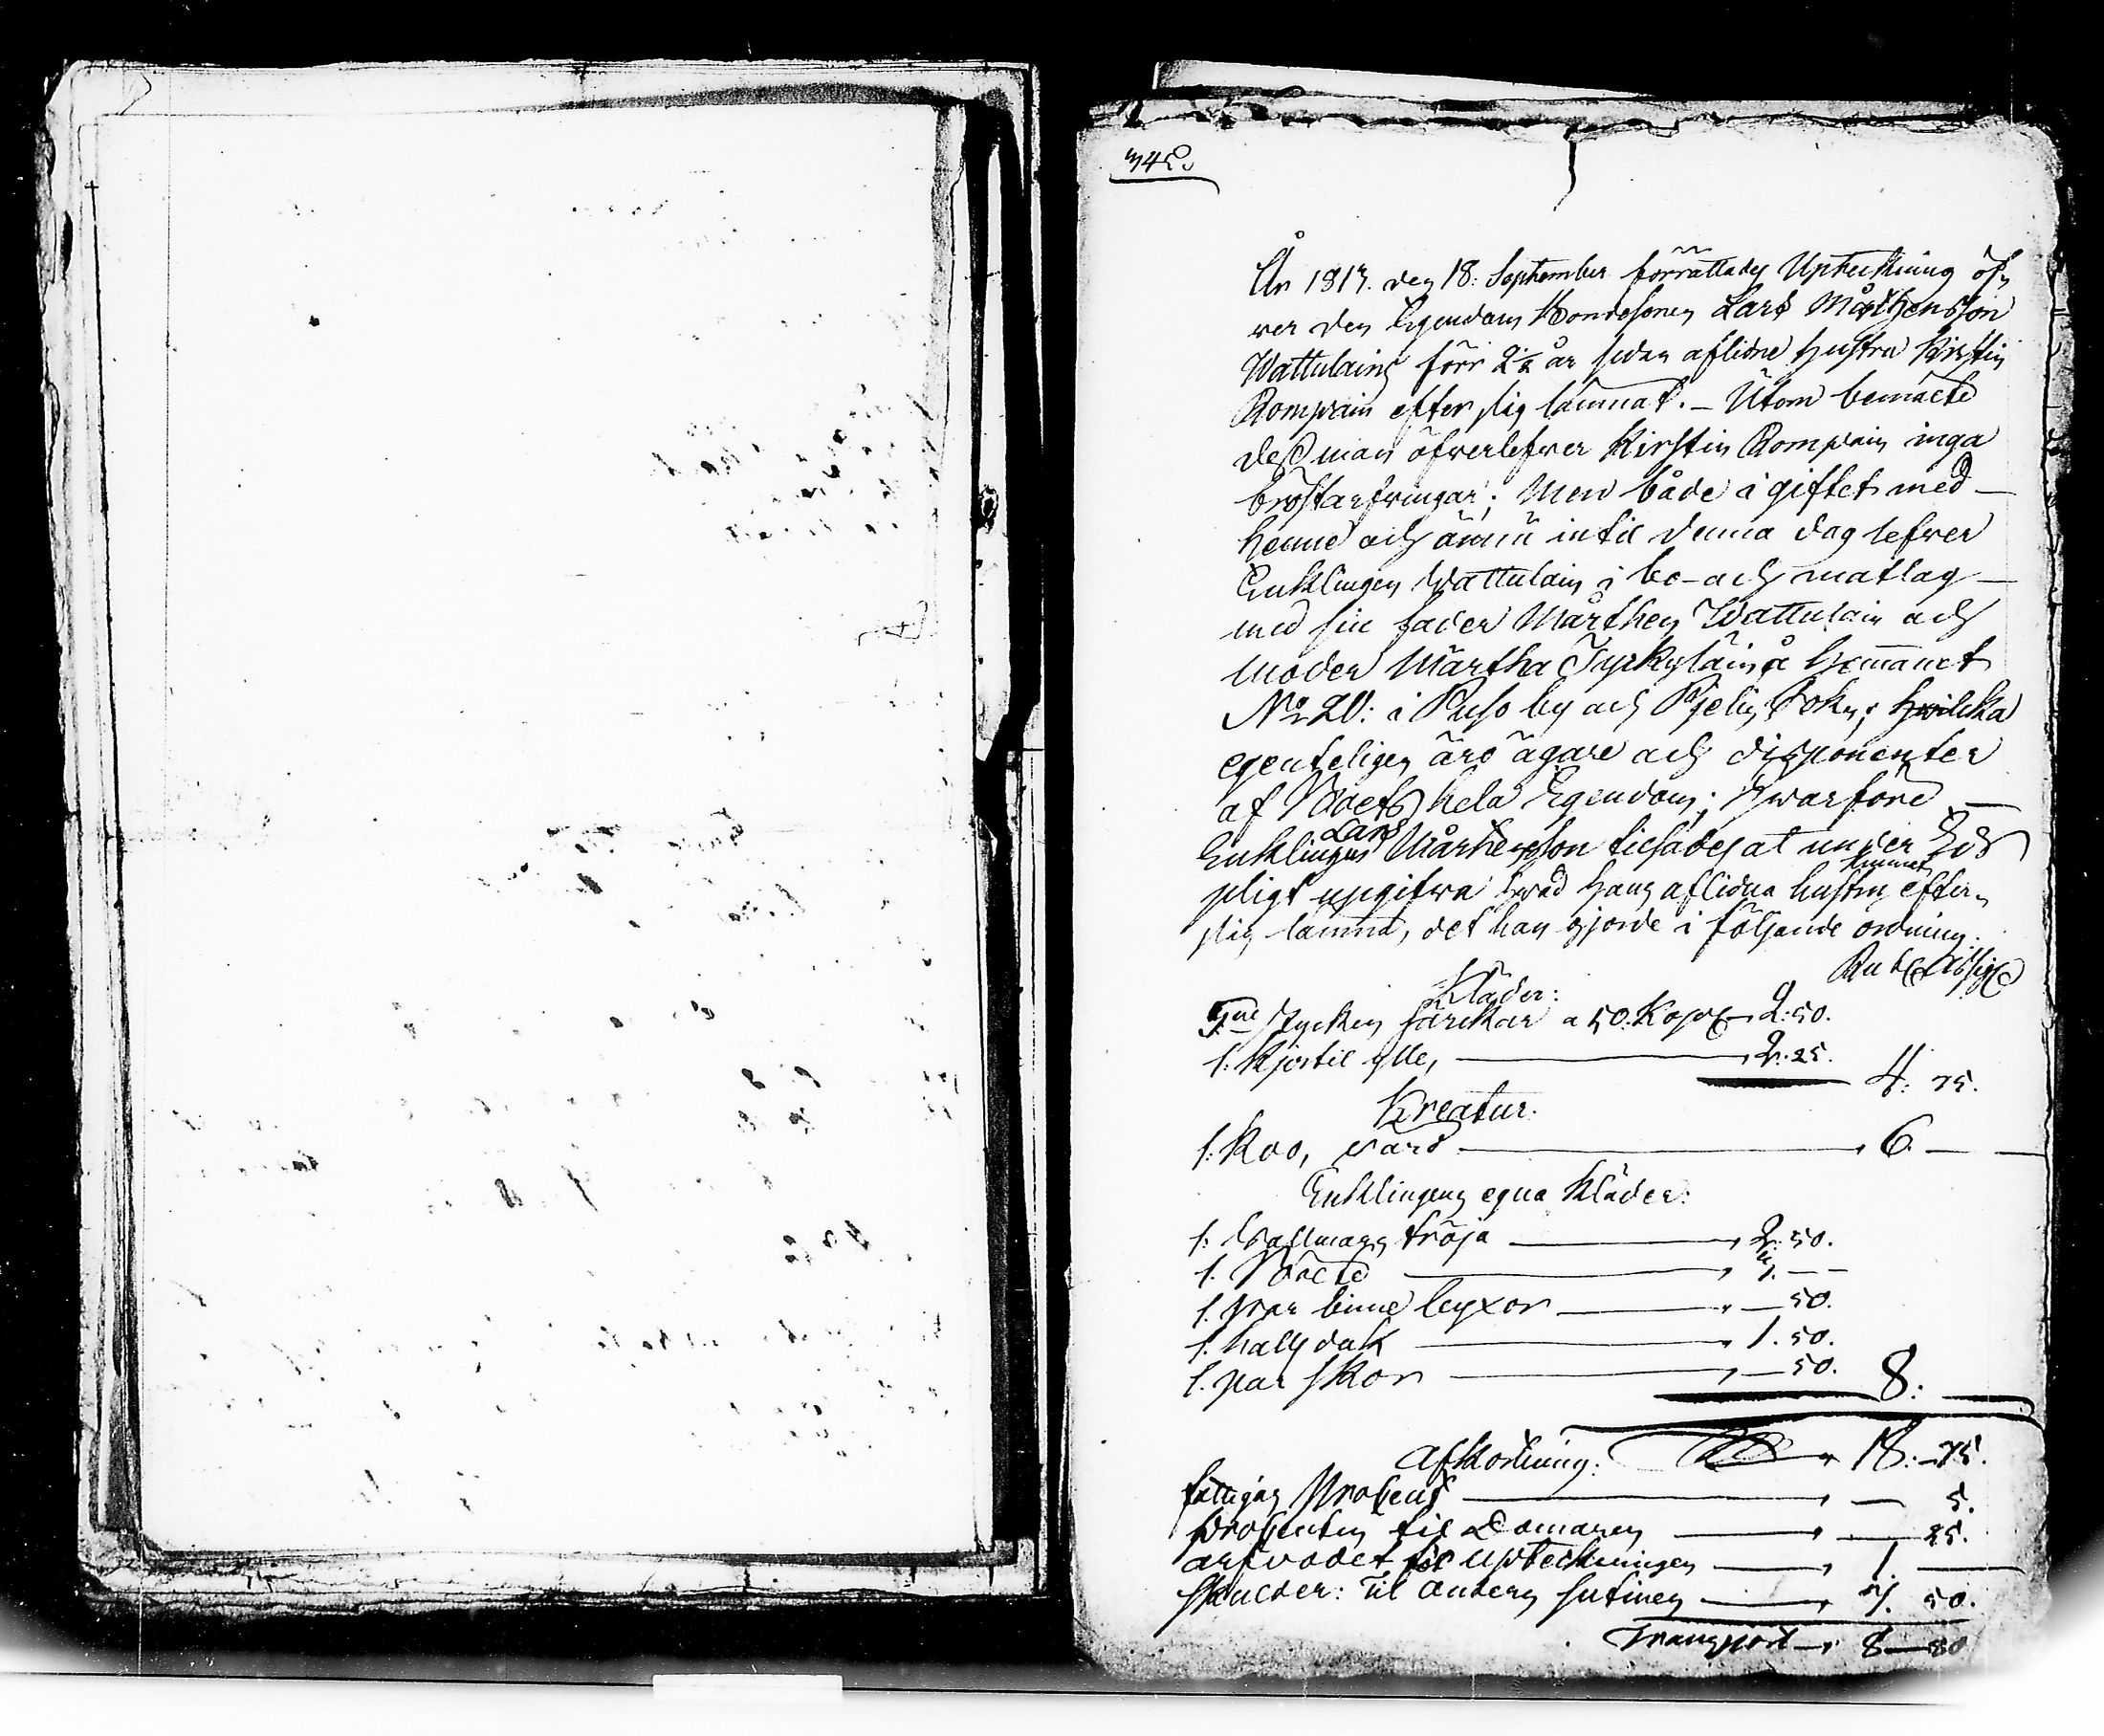 År 1817. den 18. September förrättades Upteckning öf„
ver den Egendom Bondesonen Lars Mårthensson
Wattulains förr 2½ år sedan aflidne hustru Kirstin
Rompain efter sig lämnat. – Utom bemälte
dess man öfverlefver Kirstin Rompain inga
bröstarfvingar; Men både i giftet med
henne och ännu intil denna dag lefver
Enklingen Wattulain i bo- och matlag
med sin fader Mårthen Wattulain och
moder Märtha Tyrkyläin å hemanet
No 20: i Puso by och Kjelis Sokn; hvilcka
egenteligen äro ägare och disponenter
af Boets hela Egendom; Hvarföre
Enklingen Lars Mårthensson tilsades at under Eds
pligt upgifva hvad hans aflidna hustru efter„
sig lämnat, det han gjorde i följande ordning.
Rub. Assig.
Kläder:
5. stycken särckar a 50. Kop. 2:50.
1. Kjortil ylle, 2:25.
4: 75.
Kreatur.
1. Koo, värd 6. —
Enklingens egna Kläder:
1. Wallmans tröja 2:50.
1. 
1. par linne byxor — 50.
1. halsduk 1. 50.
1. par skor — 50. 8: —
Afkortning: 18: 75.
fattigas Procent — 5.
Procenten til Domaren — 25.
arfvodet för Upteckningen 1. —
Skulder: Til Anders Sutinen 7. 50.
Transport 8 — 80